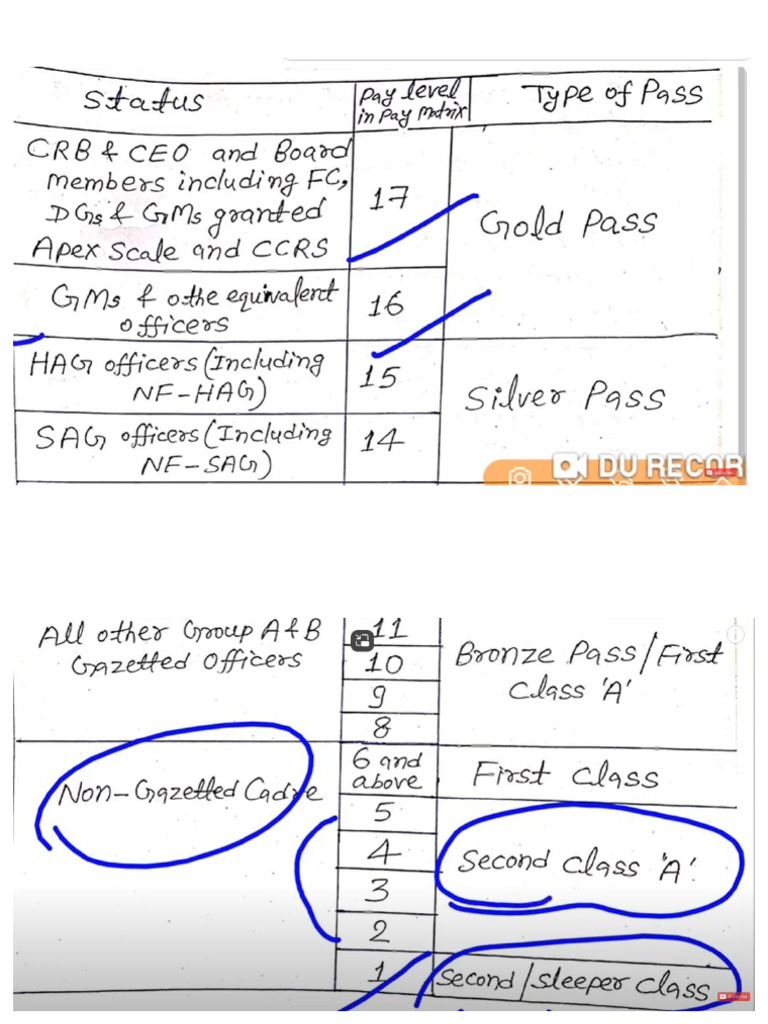 Status
Pay level
in Pay matrix
Type of Pass
CRB & CEO and Board
members including FC,
DGs & GMs granted
Apex Scale and CCRS
17
Gold Pass
GMs & othe equivalent
officers
16
HAG officers (Including
NF-HAG)
15
Silver Pass
SAG officers (Including
NF-SAG)
14
DU RECOR
All other Group A & B
Gazetted Officers
11
10
9
8
Bronze Pass/First
Class 'A'
Non-Gazetted Cadre
6 and
above
First Class
5
4
3
2
Second Class 'A'
1
Second/Sleeper Class